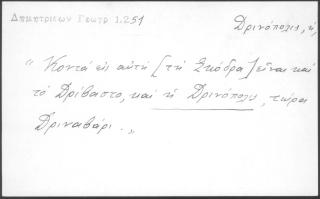 Δημητριεων Γεωγρ 1.251
Δρινόπολις, ἡ,
" Κοντά εἰς αὐτή [τη Σκόδρα] εἶναι καὶ
τὸ Δρίβαστο, καὶ ἡ Δρινόπολις, τώρα
Δριναβάρι. "